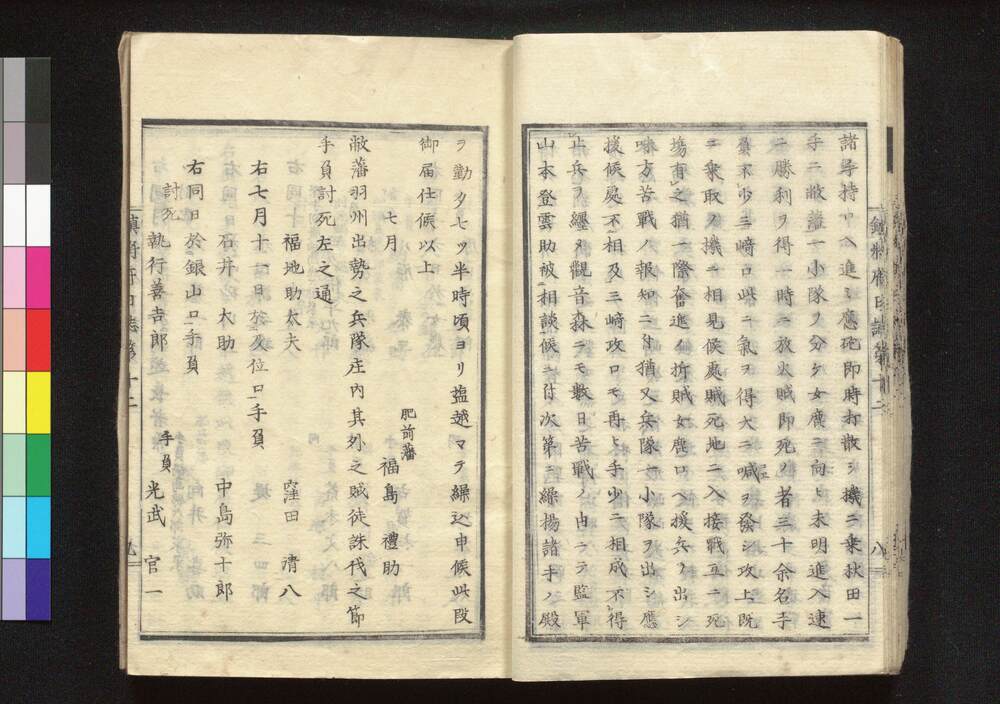 諸寻持口ヘ進ミ應砲即時打散シ機ニ乗秋田一
手ニ敝藩一小隊ヲ分ケ女鹿ニ向ヒ未明進入速
ニ勝利ヲ得一時ニ放火賊即死ノ者三十余名手
不少三﨑口此ニ氣ヲ得大ニ喊ヲ發シ攻上既
ニ乗取ノ機ニ相見候處賊死地ニ入接戰互ニ死
塲有之猶一際奮進ノ折賊女鹿口ヘ援兵ヲ出シ
味方苦戰ノ報知ニ付猶又兵隊一小隊ヲ出シ應
援候處不相及三﨑攻口モ再ヒ手少ニ相成不得
止兵ヲ纒メ觀音森ニモ數日苦戰ノ由ニテ監軍
山本登雲助被相談候ニ付次第ニ繰揚諸手ノ殿
鎮将府日誌第十二
八
ヲ勤夕七ツ半時頃ヨリ塩越マテ繰込申候此段
御届仕候以上
七月
肥前藩
福島禮助
敝藩羽州出勢之兵隊庄内其外之賊徒誅伐之節
手負討死左之通
福地助太夫
窪田清八
右七月十一日於及位口手負
石井大助
中島弥十郎
右同日於銀山口手負
討死
執行善吉郎
手負
光武官一
鎮将府日誌第十二
九